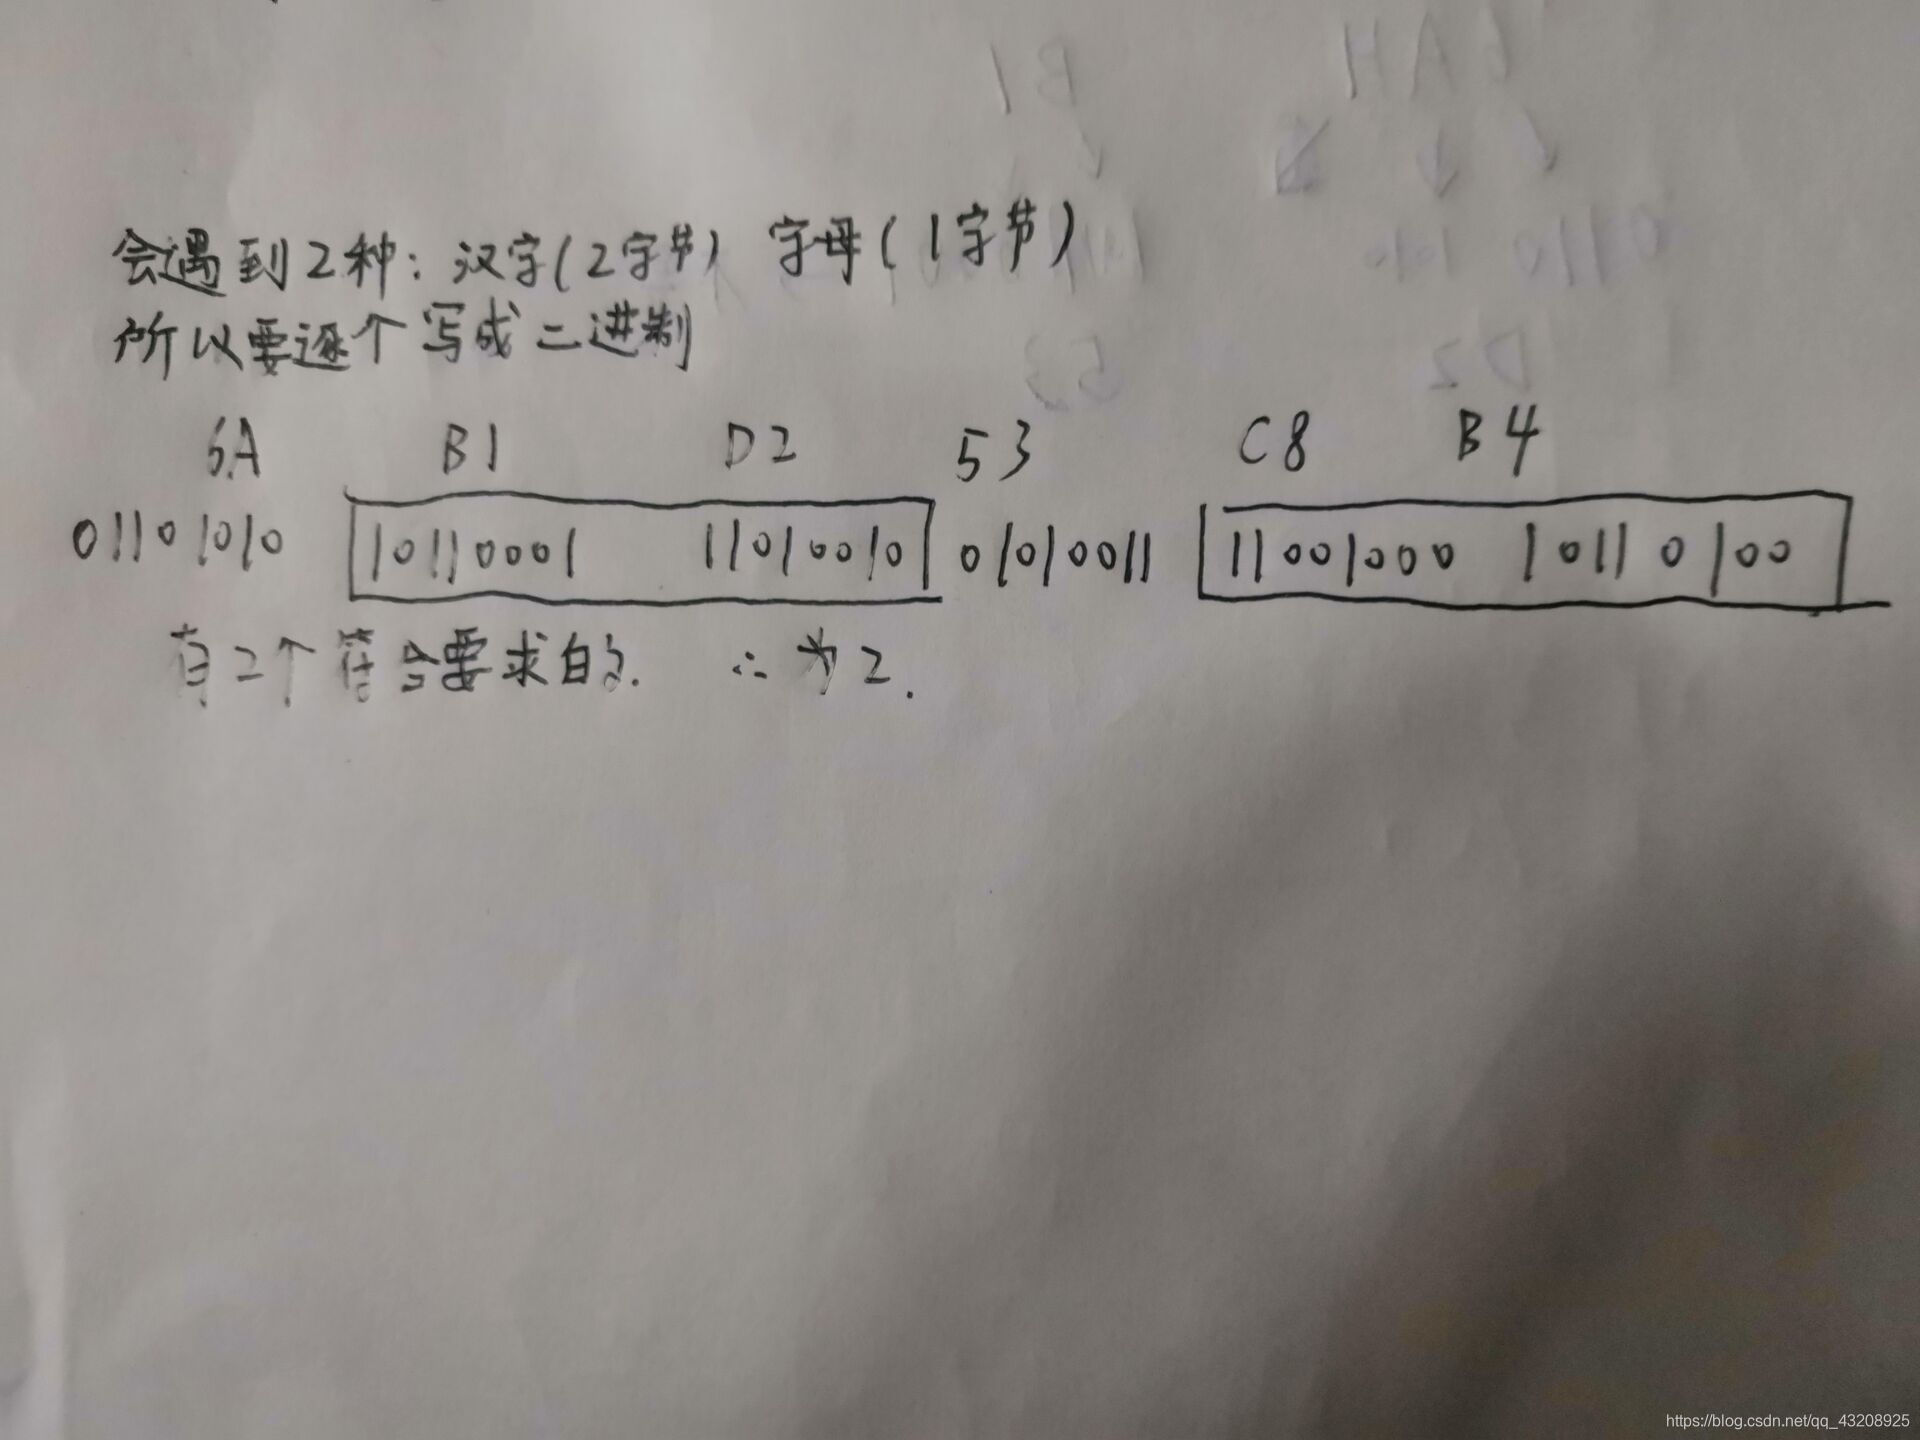 会遇到2种：汉字(2字节) 字母(1字节)
所以要逐个写成二进制
6A B1 D2 53 C8 B4
01101010 10110001 11010010 01010011 11001000 10110100
有2个符合要求的. ∴为2.
https://blog.csdn.net/qq_43208925